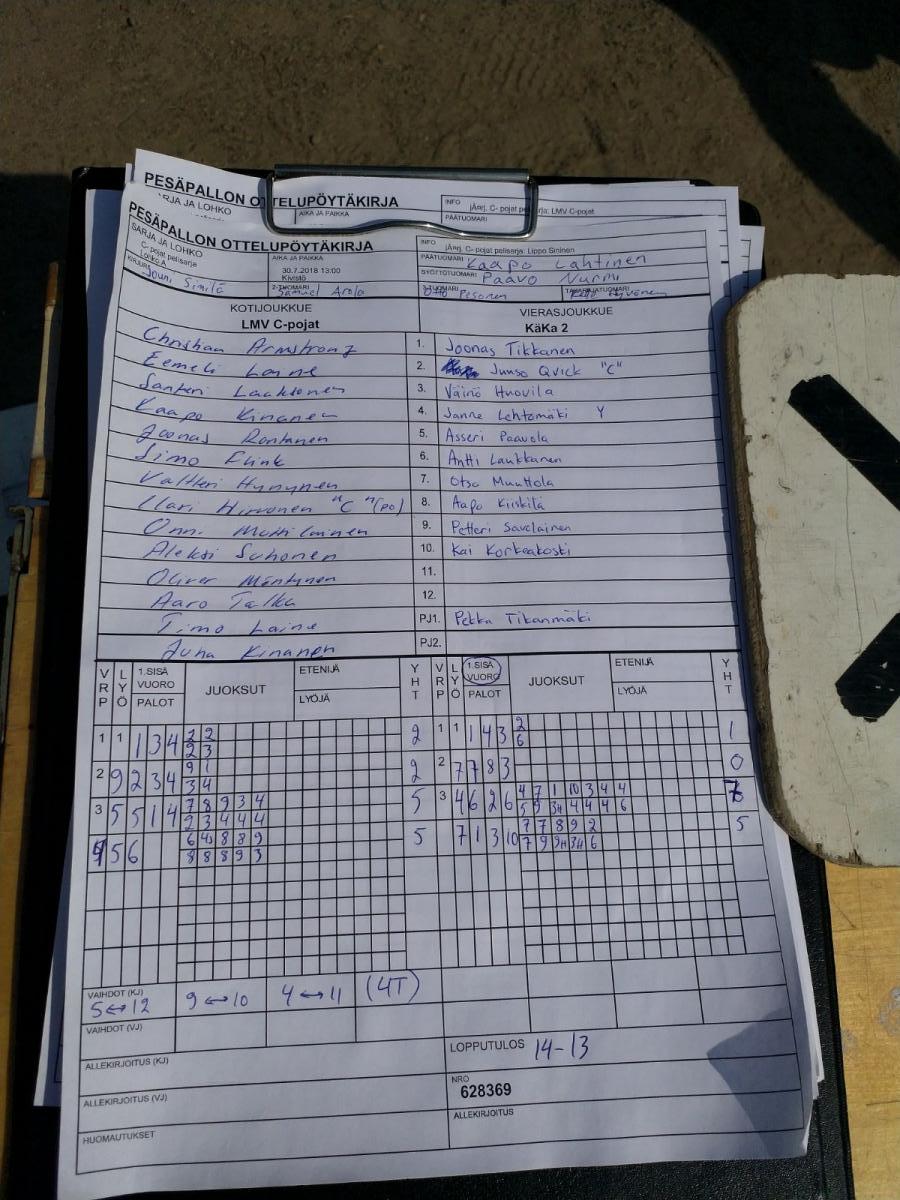 PESÄPALLON OTTELUPÖYTÄKIRJA
AIKA JA PAIKKA
INFO
PÄÄTUOMARI
PESÄPALLON OTTELUPÖYTÄKIRJA
SARJA JA LOHKO
C- pojat pelisarja
Lohko A
AIKA JA PAIKKA
30.7.2018 13:00
Kivistö
INFO jÄrj. C- pojat pelisarja: Lippo Sininen
PÄÄTUOMARI Kaapo Lahtinen
SYÖTTÖTUOMARI Paavo Nurmi
KIRJURI Jouni Similä
2-TUOMARI Samuel Arola
3-TUOMARI Otto Pesonen
TAKARAJATUOMARI
KOTIJOUKKUE
LMV C-pojat
VIERASJOUKKUE
KäKa 2
Christian Armstrong 1. Joonas Tikkanen
Eemeli Laine 2. Juuso Qvick "C"
Santeri Laaktonen 3. Väinö Huovila
Kaapo Kinanen 4. Janne Lehtomäki Y
Joonas Rantanen 5. Asseri Paavola
Simo Flink 6. Antti Laukkanen
Valtteri Hynynen 7. Otso Muuttola
Ilari Hirvonen "C" (po) 8. Aapo Kiiskilä
Onni Muttilainen 9. Petteri Savolainen
Aleksi Suhonen 10. Kai Korkeakoski
Oliver Mäntynen 11.
Aaro Talka 12.
Timo Laine PJ1. Pekka Tikanmäki
Juha Kinanen PJ2.
VRP LYÖ 1.SISÄ VUORO PALOT JUOKSUT ETENIJÄ LYÖJÄ YHT VRP LYÖ 1.SISÄ VUORO PALOT JUOKSUT ETENIJÄ LYÖJÄ YHT
1 1 1 3 4 2 2 2 1 1 1 4 3 2 1
2 3 6
2 9 2 3 4 9 1 2 2 7 7 8 3 0
3 4
3 5 5 1 4 7 8 9 3 4 5 3 4 6 2 6 4 7 1 10 3 4 4
2 3 4 4 4
5 6 8 8 9 5 7 1 3 10 7 7 8 9 2 5
8 8 8 9 3
VAIHDOT (KJ)
5↔12 9↔10 4↔11 (4T)
VAIHDOT (VJ)
ALLEKIRJOITUS (KJ)
LOPPUTULOS 14-13
ALLEKIRJOITUS (VJ)
NRO
628369
HUOMAUTUKSET
ALLEKIRJOITUS